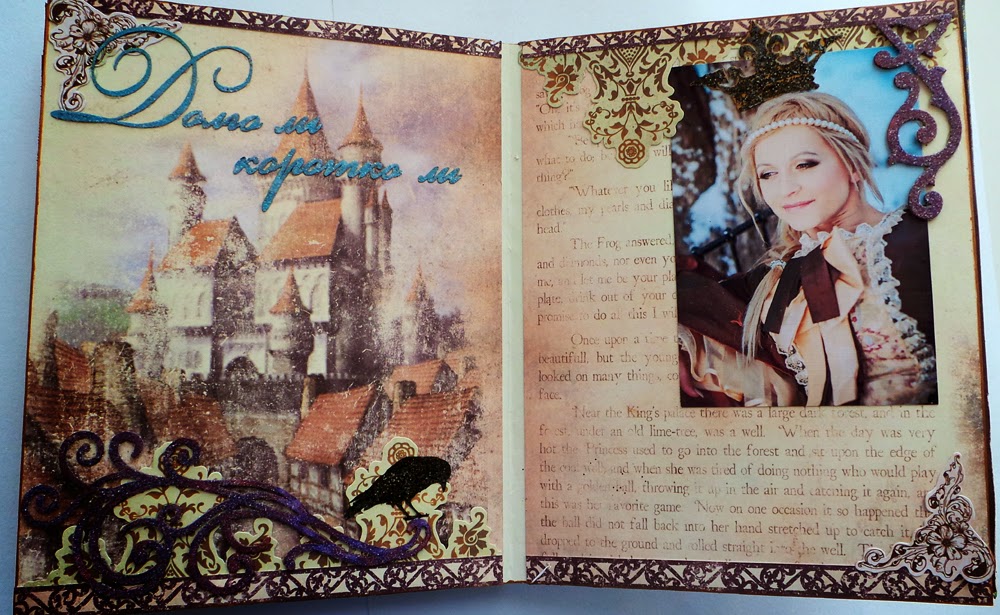 Долго ли
коротко ли
"One it's
which
what to do: will
thing?"
"Whatever you
clothes, my pearls and
head."
The Frog answered,
and diamonds, nor even
me, let me be your
plate, drink out of your
promise to do all this I
Once upon a
beautifull, but the
looked on many things,
face.
Near the King's palace there was a large dark forest, and in the
forest, under an old lime-tree, was a well. "When the day was very
hot the Princess used to go into the forest and sit upon the edge of
the well and when she was tired of doing nothing who would play
with a golden ball, throwing it up in the air and catching it again,
this was her favorite game. "Now on one occasion it so happened
the ball did not fall back into her hand stretched up to catch it,
dropped to the ground and rolled straight into the well.